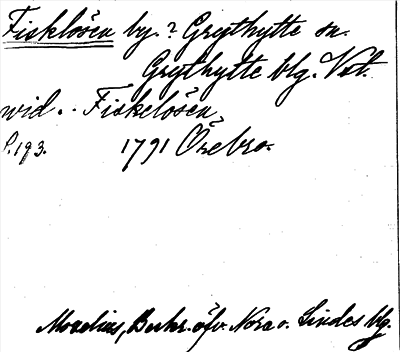 Fisklösen by. ? Grythytte sn.
Grythytte blg. Vst.
vid . . Fiskelösen,
S. 193. 1791 Örebro.
Morelius, Beskr. öfv. Nora o. Lindes blg.